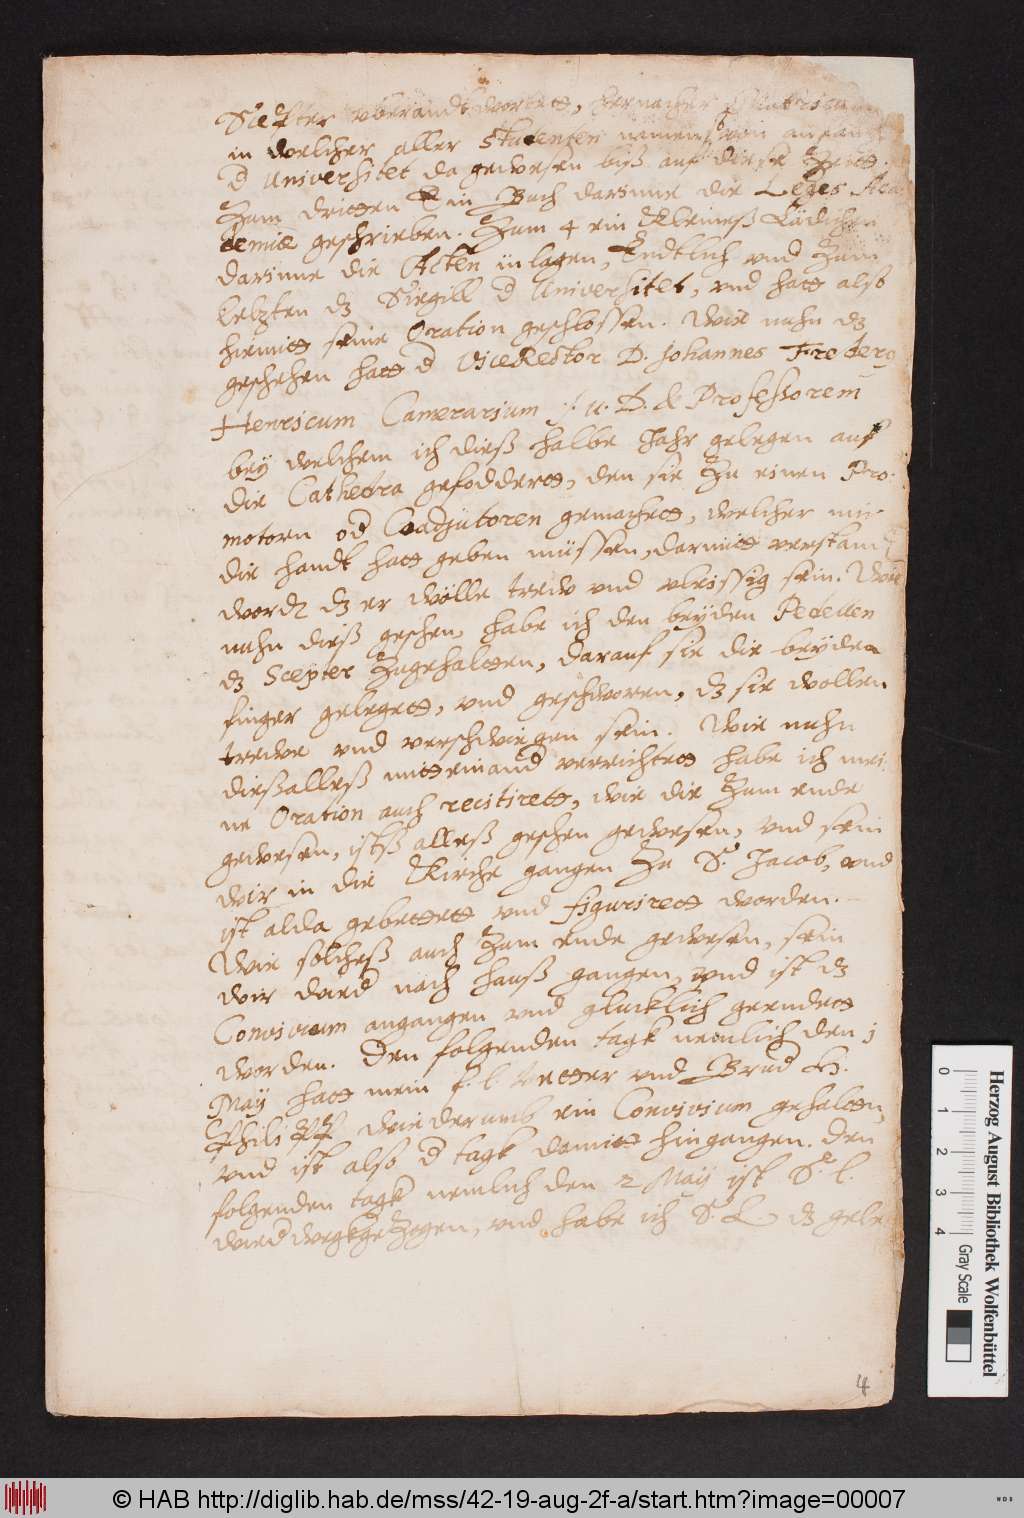 Scepter uberandtwortet, hernacher Matricu
in welcher aller studenten namens von anfang
d Universitet da gewesen biß auf diese Zeit.
Zum dritten Ein Buch darinne die Leges Aca
demiæ geschrieben. Zum 4 ein Kleineß Lädichen
darinne die Acten inlagen, Endtlich und Zum
letzten dz Siegill d Universitet, und hatt also
hiemitt seine Oration geschlossen. Wie nuhn dz
geschehen hatt d ViceRector D. Johannes Froberg
Henricum Camerarium J. U. D. & Professorem
bey welchem ich dieß halbe Jahr gelegen auf
die Cathedra gefoddertt, den sie Zu einen Pro-
motorn od Coadjutoren gemachett, welcher mir
die handt hatt geben müssen, darmitt verstand
word dz er wölle trew und vleissig sein. Wie
nuhn dieß geschen, habe ich den beyden Pedellen
dz Scepter Zugehaltten, darauf sie die beyden
finger gelegett, und geschworen, dz sie wollen
trewe und verschwiegen sein. Wie nuhn
dieß alleß mitteinand verrichtett habe ich mei
ne Oration auch recitirett, wie die Zum ende
gewesen, istß alleß geschen gewesen, und sein
wir in die Kirche gangen Zu S. Jacob, und
ist alda gebettett und figurirett worden.
Wie solcheß auch Zum ende gewesen, sein
wir wied nach hauß gangen, und ist dz
Convivium angangen und glucklich geendett
worden. Den folgenden tagk nemlich den j
May hatt mein f. l. Vetter und Brud H.
Philipp wiederumb ein Convivium gehaltten,
und ist also d tagk damitt hingangen. Den
folgenden tagk nemlich den 2 May ist S. l.
wied wegkgeZogen, und habe ich S. L. dz gele
4
Herzog August Bibliothek Wolfenbüttel
0 1 2 3 4
Gray Scale
© HAB http://diglib.hab.de/mss/42-19-aug-2f-a/start.htm?image=00007